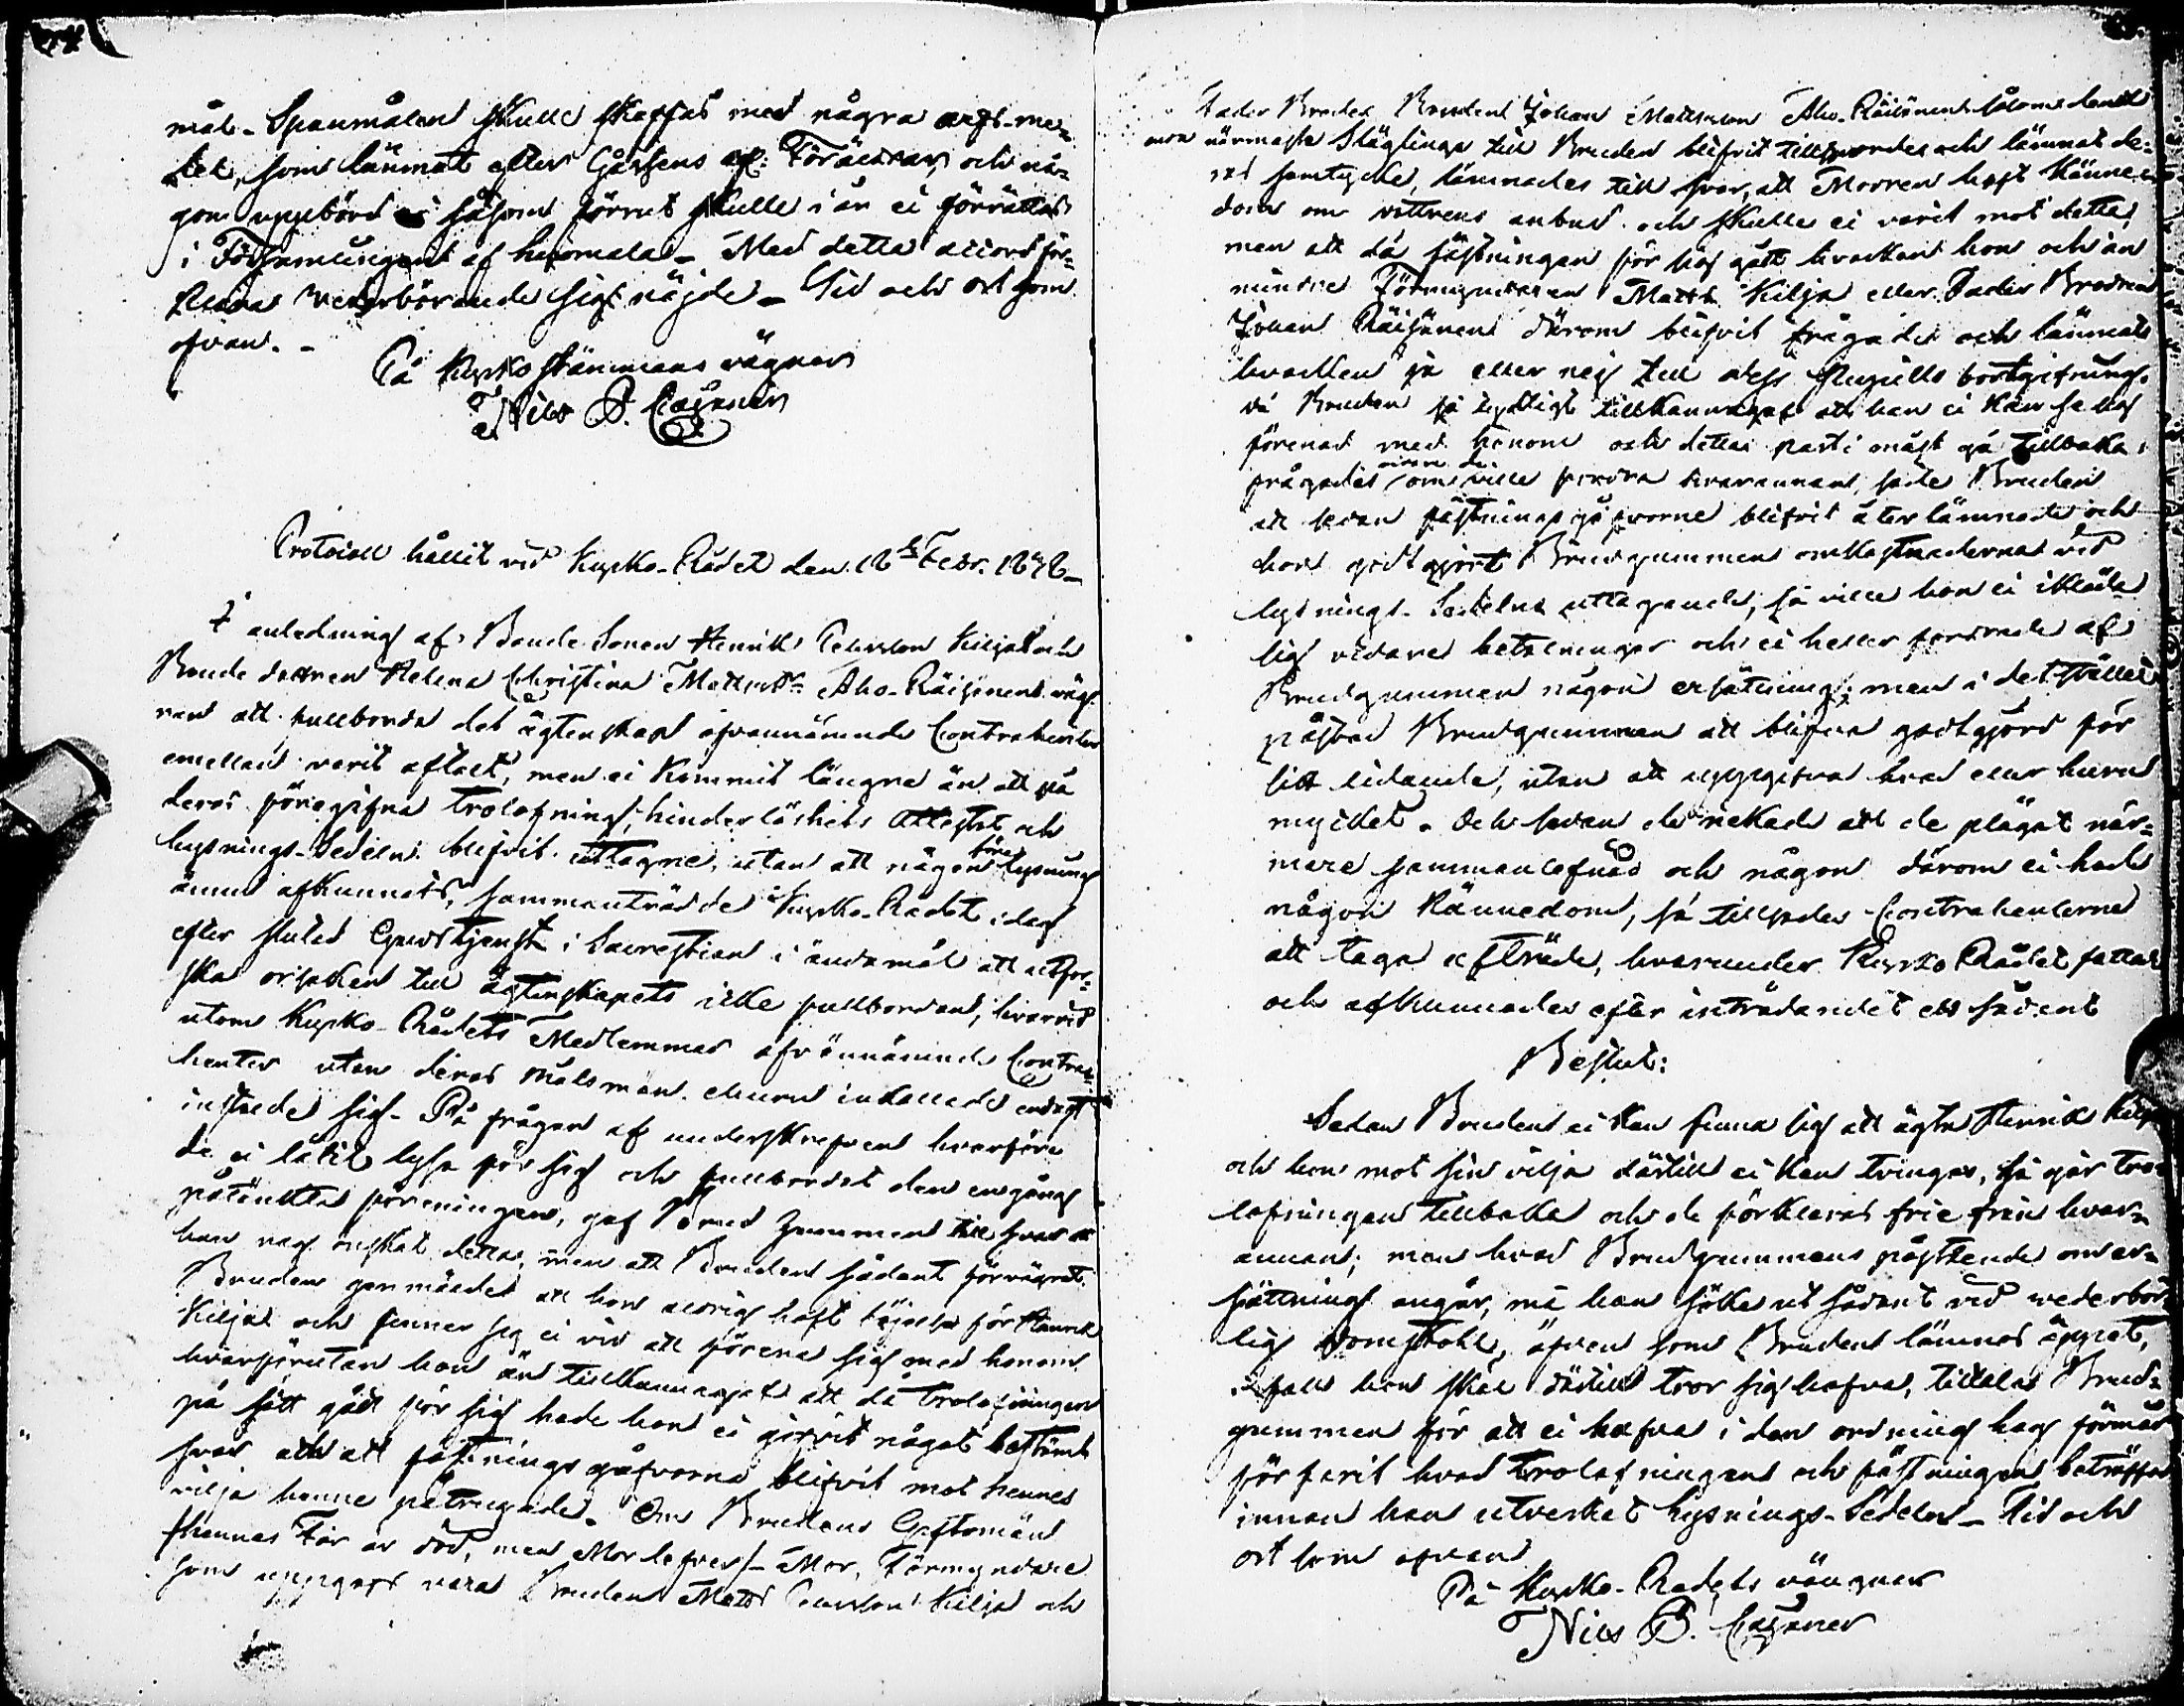 mål. Spanmålen skulle skaffas med några arfs-me-
del, som lämnat efter Gossens afl: Föräldrar, och nå-
gon uppbörd ei såsom förrut skulle i år ei förrättas
i Församlingen af hemmalen. Med detta accord för-
klara wederbörande sig nöjde. Tid och ort som
ofvan.
På Kyrko stämmans vägnar
Nils B.
Protocoll hållit vid Kyrko-Rådet den Febr.
I anledning af Bonde Sonen Henrik Petersson Kilja och
Bonde dottren Helena Christina Mattsdr Aho-Räisänens väg-
ran att fullborda det ägtenskap ofvannämnde Contrahenter
emellan varit aftalt, men ei kommit längre än att på
deras föregifna trolofning, hinderlöshets Attestat och
lysnings-Sedeln blifvit uttagne, utan att någon lysning
ännu afkunnats, sammanträdde Kyrko-Rådet i dag
efter slutad Gudstjenst i Sacrestian i ändamål att utfor-
ska orsaken till Ägtenskapets icke fullbordan, hvarvid
utom Kyrko-Rådets Medlemmar ofvannämnde Contra-
henter utan deras målsmän ehuru inkallade endast
instälde sig. På frågan af underskrefven hvarföre
de ei låtit lysa för sig och fullbordat den engång
påtänkta föreningen, gaf Brud gummen till svar att
han nog önskat detta, men att Bruden sådant förvägrat.
Bruden genmälde att hon aldrig haft tycke för Henrik
Kilja och finner sig ei vid att förena sig med honom
hvarförutan hon än tillkännagaf att då trolofningen
på sätt gådt för sig hade hon ei gifvit något bestämt
svar och att fästnings gåfvorna blifvit mot hennes
vilja henne påtrugade. Om Brudens Giftomän
(hennes Far är död, men Mor lefver) Mor, Förmyndare
som uppgafs vara Brudens Matts Petersson Kilja och
Fader Broder Brudens Johan Mattsson Aho-Räisänen
närmaste Släglingar till Bruden blifvit tillspordes och lämnat de-
ras samtycke, lämnades till svar, att Modren haft känne-
dom om dottrens anbud och skulle ei varit mot detta,
men att då fästningen för sig gått hvarken hon och än
mindre Förmyndaren Matts Kilja eller Fader Brodren
Johan Räisänen därom blifvit frågade och lämnat
hvarken ja eller nej till dess bortgifning.
Då Bruden så tydligt tillkännagaf att hon ei kan se sig
förenad med honom och detta parti måst gå tillbaka,
frågades om de ville fordra hvarannan, sade Bruden
att sedan fästnings gåfvorne blifvit återlämnade och
hon godtgjort Brudgummens omkostnaderna vid
lysnings-Sedelns uttagande, så ville hon ei ikläda
sig vidare betalningar och ei heller fordrade af
Brudgummen någon ersätning; men i det stället
påstod Brudgummen att blifva godtgjord för
sitt lidande, utan att uppgifva hvad eller huru
mycket. Och sedan de nekade att de plägat när-
mare sammanlefnad och någon därom ei hade
någon kännedom, så tillsades Contrahenterna
att taga afträde, hvarunder Kyrko Rådet fattade
och afkunnades efter inträdandet ett sådant
Beslut:
Sedan Bruden ei kan finna sig att ägta Henrik Kilja
och hon mot sin vilja därtill ei kan tvingas, så går tro-
lofningen tillbaka och de förklaras frie från hvar-
annan; men hvad Brudgummens påstående om er-
sättning angår, må han söka ut sådant vid wederbör-
lig domstohl, äfven som Bruden lämnas öppet,
ifall hon skäl därtill tror sig hafva, tilltala Brud-
gummen för att ei hafva i den ordning lag förmår
förfarit hvad trolofningen och fästningen beträffar
innan han utverkat Lysnings-Sedeln. Tid och
ort som ofvan
På Kyrko-Rådets vägnar
Nils B.